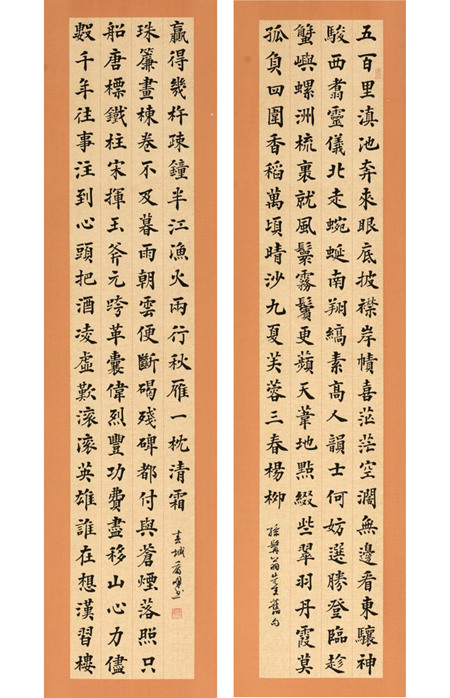 五百里滇池奔來眼底披襟岸幘喜茫茫空濶無邊看東驤神
駿西翥靈儀北走蜿蜒南翔縞素高人韻士何妨選勝登臨趁
蟹嶼螺洲梳裹就風鬟霧鬢更蘋天葦地點綴些翠羽丹霞莫
孤負四圍香稻萬頃晴沙九夏芙蓉三春楊柳
孫髯翁先生舊句
數千年往事注到心頭把酒凌虛歎滾滾英雄誰在想漢習樓
船唐標鐵柱宋揮玉斧元跨革囊偉烈豐功費盡移山心力儘
珠簾畫棟卷不及暮雨朝雲便斷碣殘碑都付與蒼煙落照只
贏得幾杵疎鐘半江漁火兩行秋雁一枕清霜